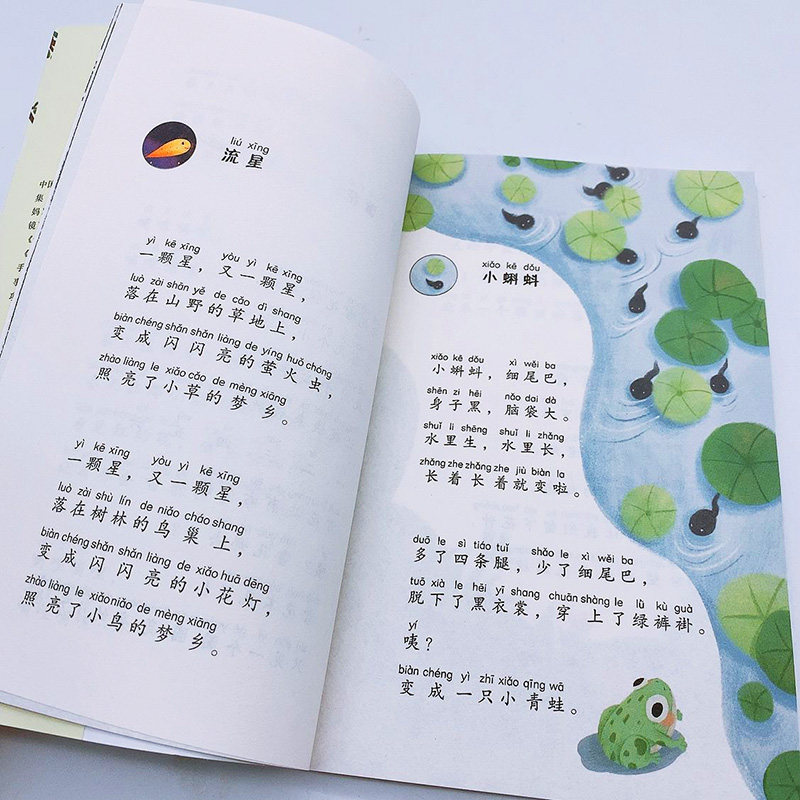 liú xīng
流星
yì kē xīng yòu yì kē xīng
一颗星，又一颗星，
luò zài shān yě de cǎo dì shang
落在山野的草地上，
biàn chéng shǎn shǎn liàng de yíng huǒ chóng
变成闪闪亮的萤火虫，
zhào liàng le xiǎo cǎo de mèng xiāng
照亮了小草的梦乡。
yì kē xīng yòu yì kē xīng
一颗星，又一颗星，
luò zài shù lín de niǎo cháo shang
落在树林的鸟巢上，
biàn chéng shǎn shǎn liàng de xiǎo huā dēng
变成闪闪亮的小花灯，
zhào liàng le xiǎo niǎo de mèng xiāng
照亮了小鸟的梦乡。
xiǎo kē dǒu
小蝌蚪
xiǎo kē dǒu xì wěi ba
小蝌蚪，细尾巴，
shēn zi hēi nǎo dai dà
身子黑，脑袋大。
shuǐ li shēng shuǐ li zhǎng
水里生，水里长，
zhǎng zhe zhǎng zhe jiù biàn la
长着长着就变啦。
duō le sì tiáo tuǐ shǎo le xì wěi ba
多了四条腿，少了细尾巴，
tuō xià le hēi yī shang chuān shàng le lǜ kù guà
脱下了黑衣裳，穿上了绿裤褂。
yí
咦？
biàn chéng yì zhī xiǎo qīng wā
变成一只小青蛙。